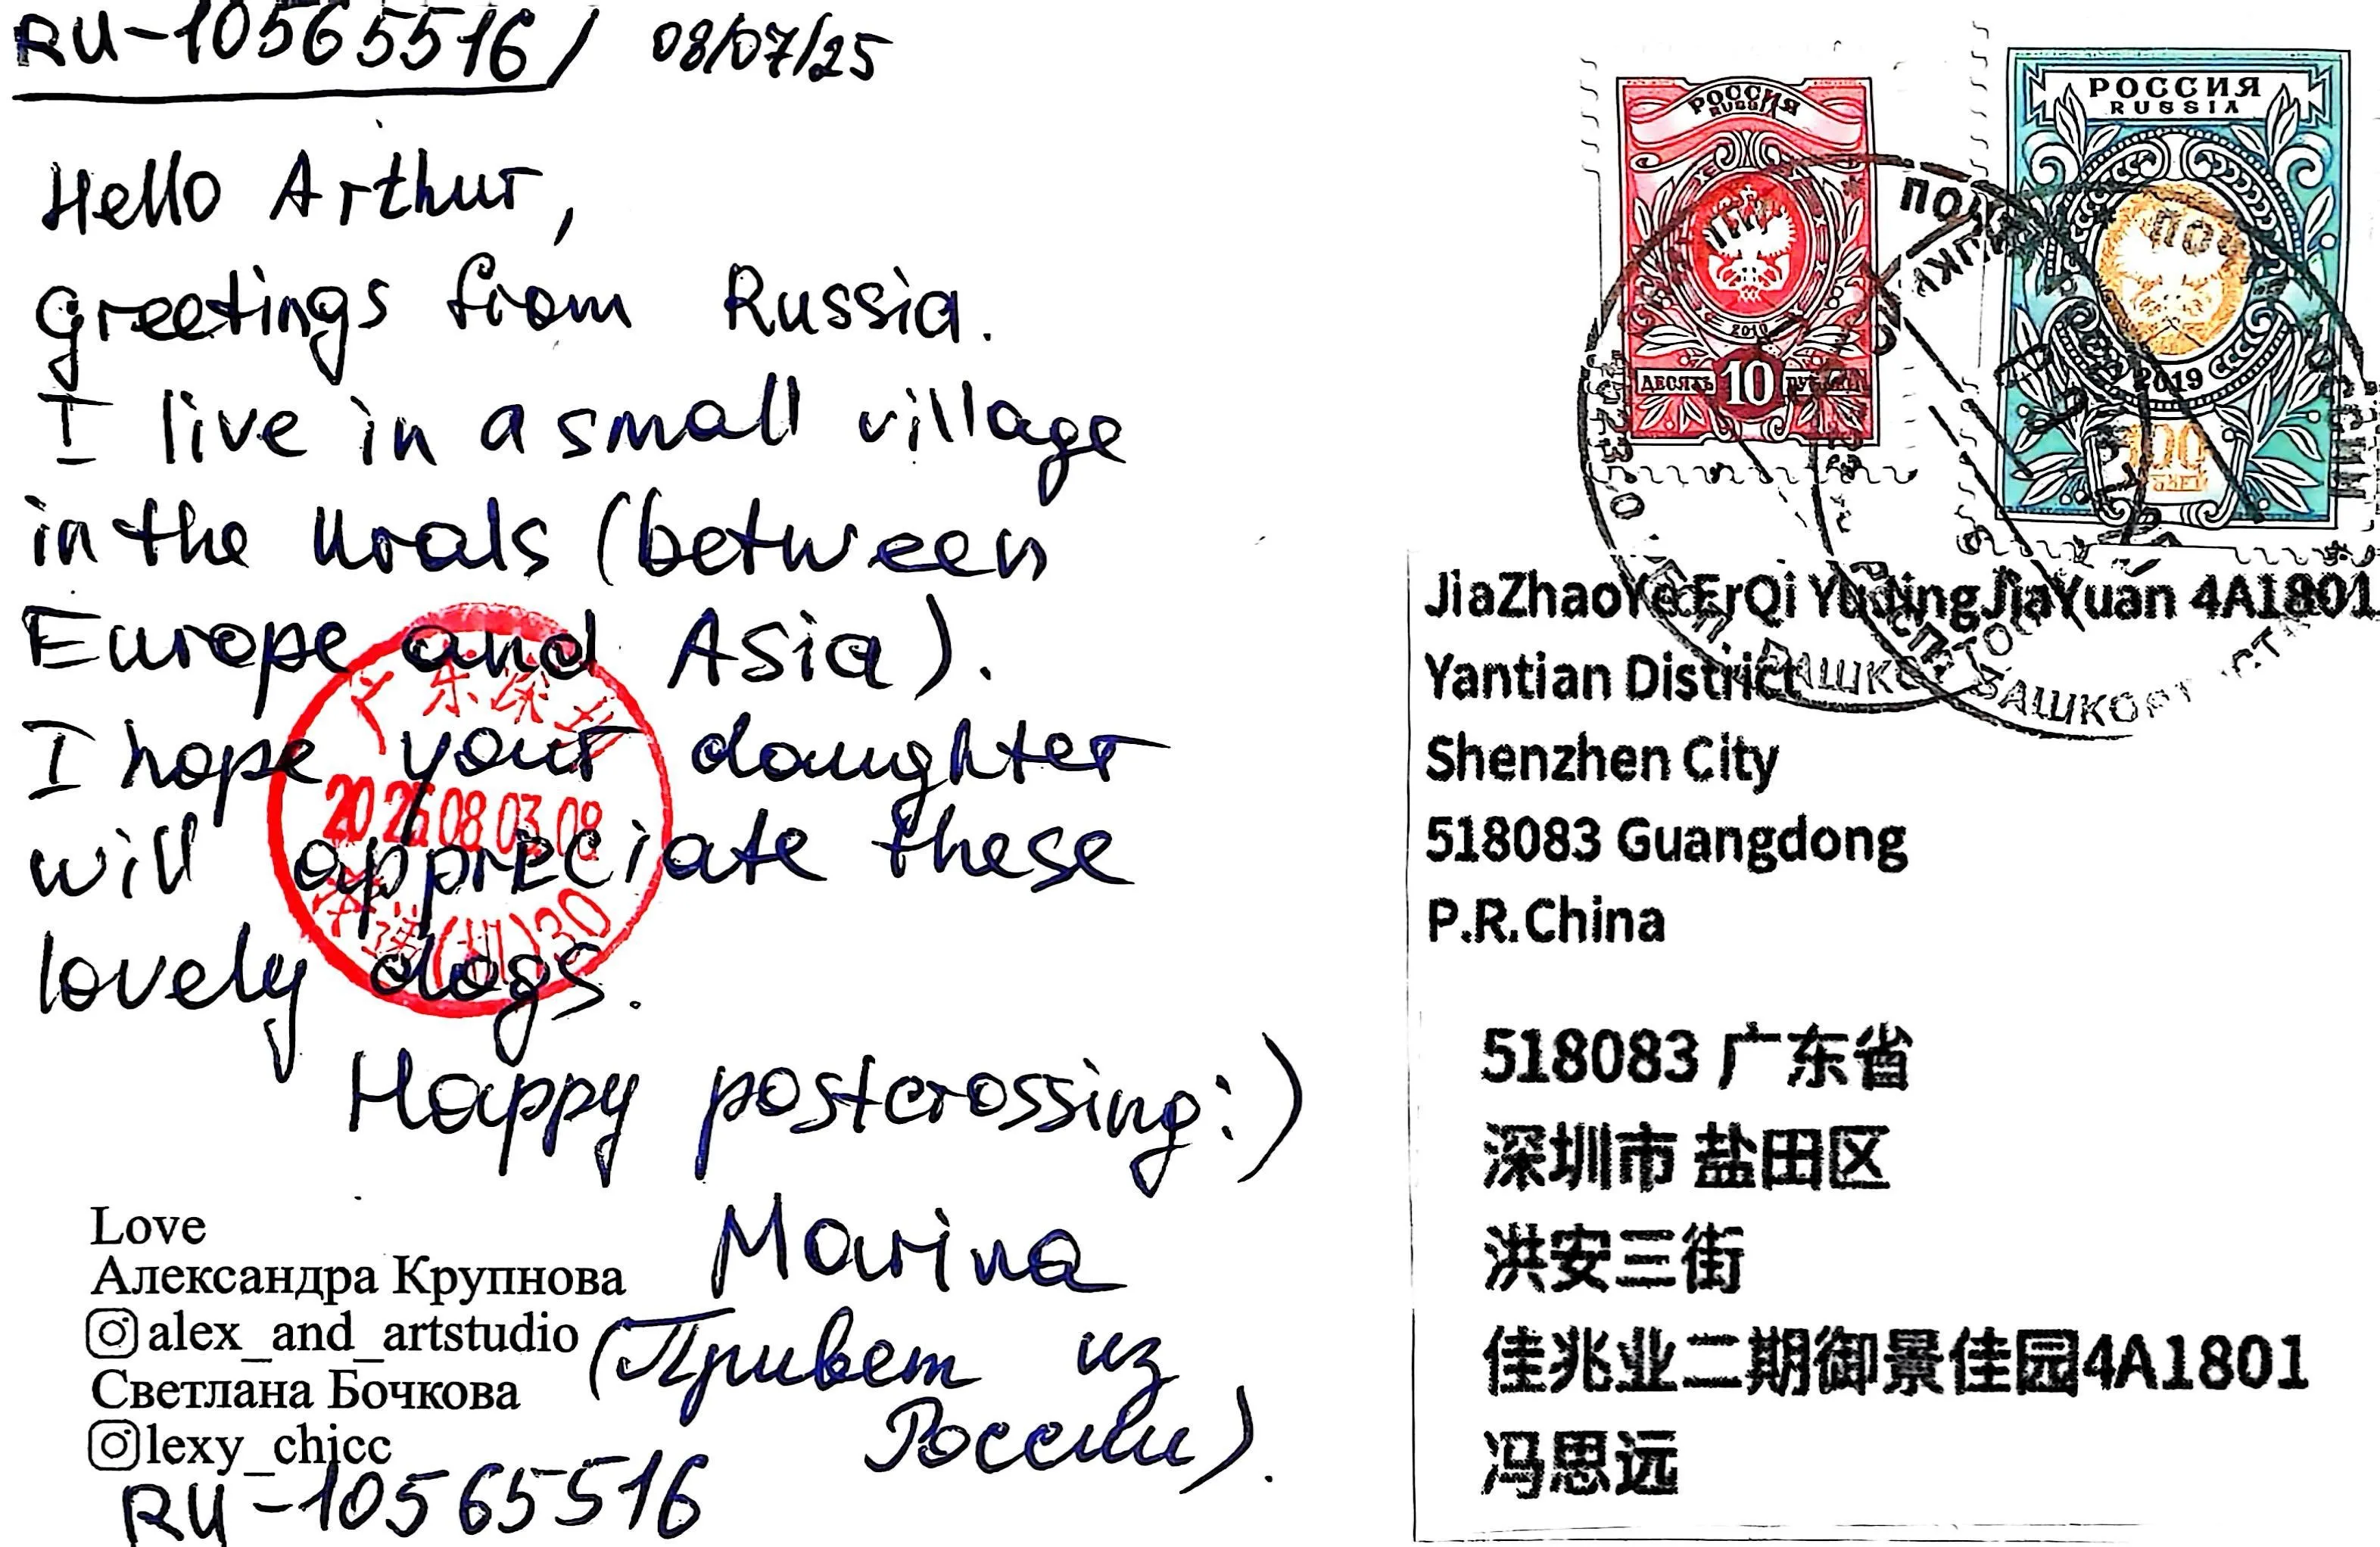 RU-10565516/ 08/07/25
Hello Arthur,
greetings from Russia.
I live in a small village
in the Urals (between
Europe and Asia).
I hope your daughter
will appreciate these
lovely dogs.
Happy postcrossing:)
Marina
(Привет из
России).
Love
Александра Крупнова
alex_and_artstudio
Светлана Бочкова
lexy_chicc
RU-10565516
广东深圳
2025 08 03 08
30
РОССИЯ
RUSSIA
2019
ДЕСЯТЬ 10 РУБЛЕЙ
РОССИЯ
RUSSIA
2019
100
РУБЛЕЙ
БАШКОРТОСТАН
JiaZhaoYe ErQi YuJingJiaYuan 4A1801
Yantian District
Shenzhen City
518083 Guangdong
P.R.China
518083 广东省
深圳市 盐田区
洪安三街
佳兆业二期御景佳园4A1801
冯思远